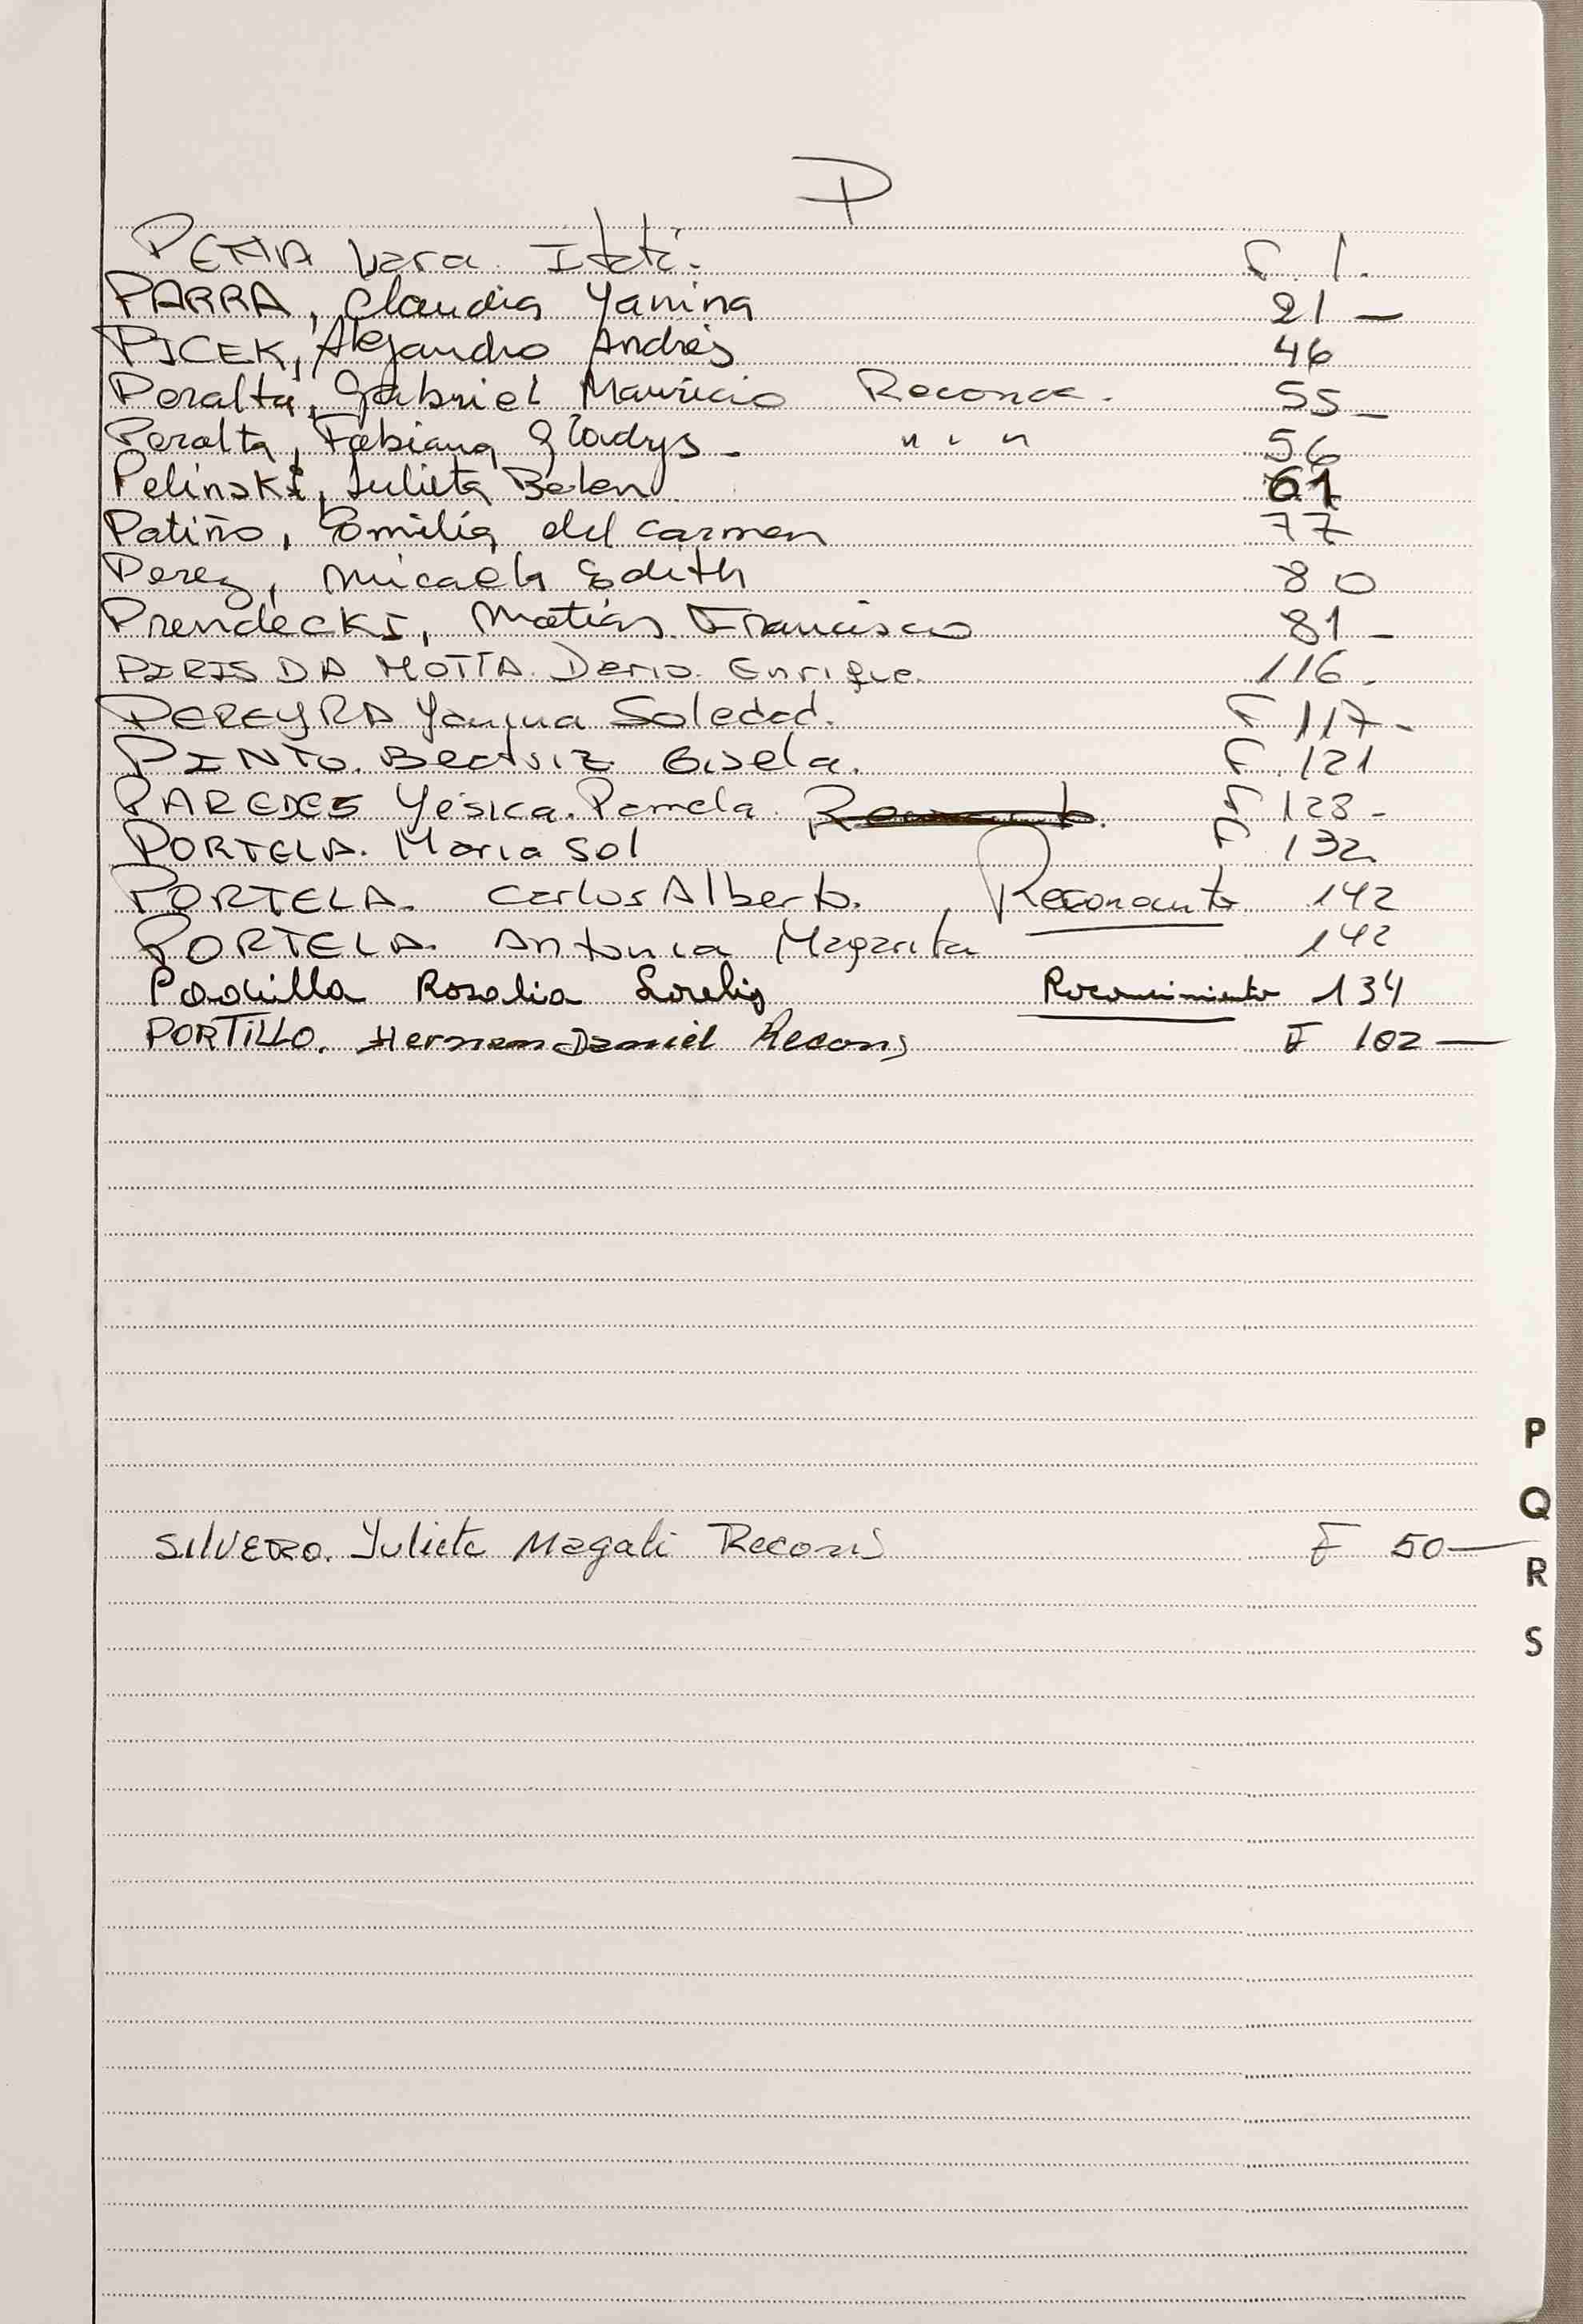 P
PEÑA Lara Itatí. F. 1.
PARRA, Claudia Yanina 21 -
PICEK, Alejandro Andrés 46
Peralta, Gabriel Mauricio Reconoc. 55 -
Peralta, Fabiana Gladys - " " " 56
Pelinski, Julieta Belen 61
Patiño, Emilia del carmen 77
Perez, Micaela Edith 80
Prendecki, Matías Francisco 81 -
PIRIS DA MOTTA Dario Enrique. 116.
PEREYRA Yanina Soledad. F 117 -
PINTO. Beatriz Gisela. F. 121
PAREDES Yésica. Pamela. F 128 -
PORTELA. Maria Sol F 132
PORTELA. Carlos Alberto. 142
PORTELA. Antonia Magarita 142
Rosalia Reconocimiento 134
PORTILLO. Hernan Daniel Recons F 102 -
SILVERO. Julieta Magali Recons F 50 -
P
Q
R
S